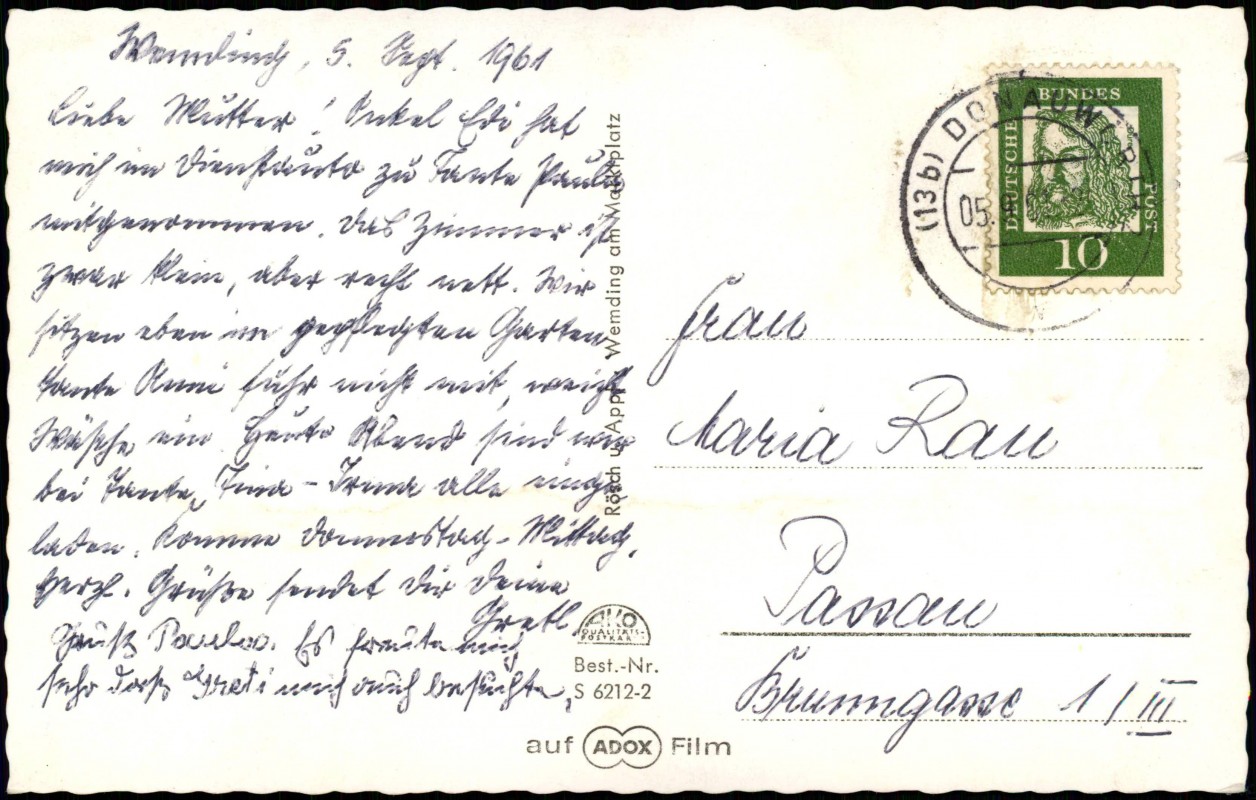 Wemding, 5. Sept. 1961
Liebe Mutter! Onkel Edi hat
mich im Dienstauto zu Tante Paula
mitgenommen. Das Zimmer ist
zwar klein, aber recht nett. Wir
sitzen eben im gepflegten Garten
Tante Anni fuhr nicht mit, weicht
Wäsche ein. Heute Abend sind wir
bei Tante Irma alle einge
laden. Komme Donnerstag-Mittag.
Herzl. Grüße sendet Dir Deine
Gretl
Gruß Paula. Es freute mich
sehr daß Gretl mich auch besuchte.
Rösch u. Appl, Wemding am Marktplatz
AKO
QUALITÄTS-
POSTKARTE
Best.-Nr.
S 6212-2
auf ADOX Film
(13b) DONAUWÖRTH
05.9.
DEUTSCHE BUNDES POST
10
Frau
Maria Rau
Passau
Brunngasse 1/III